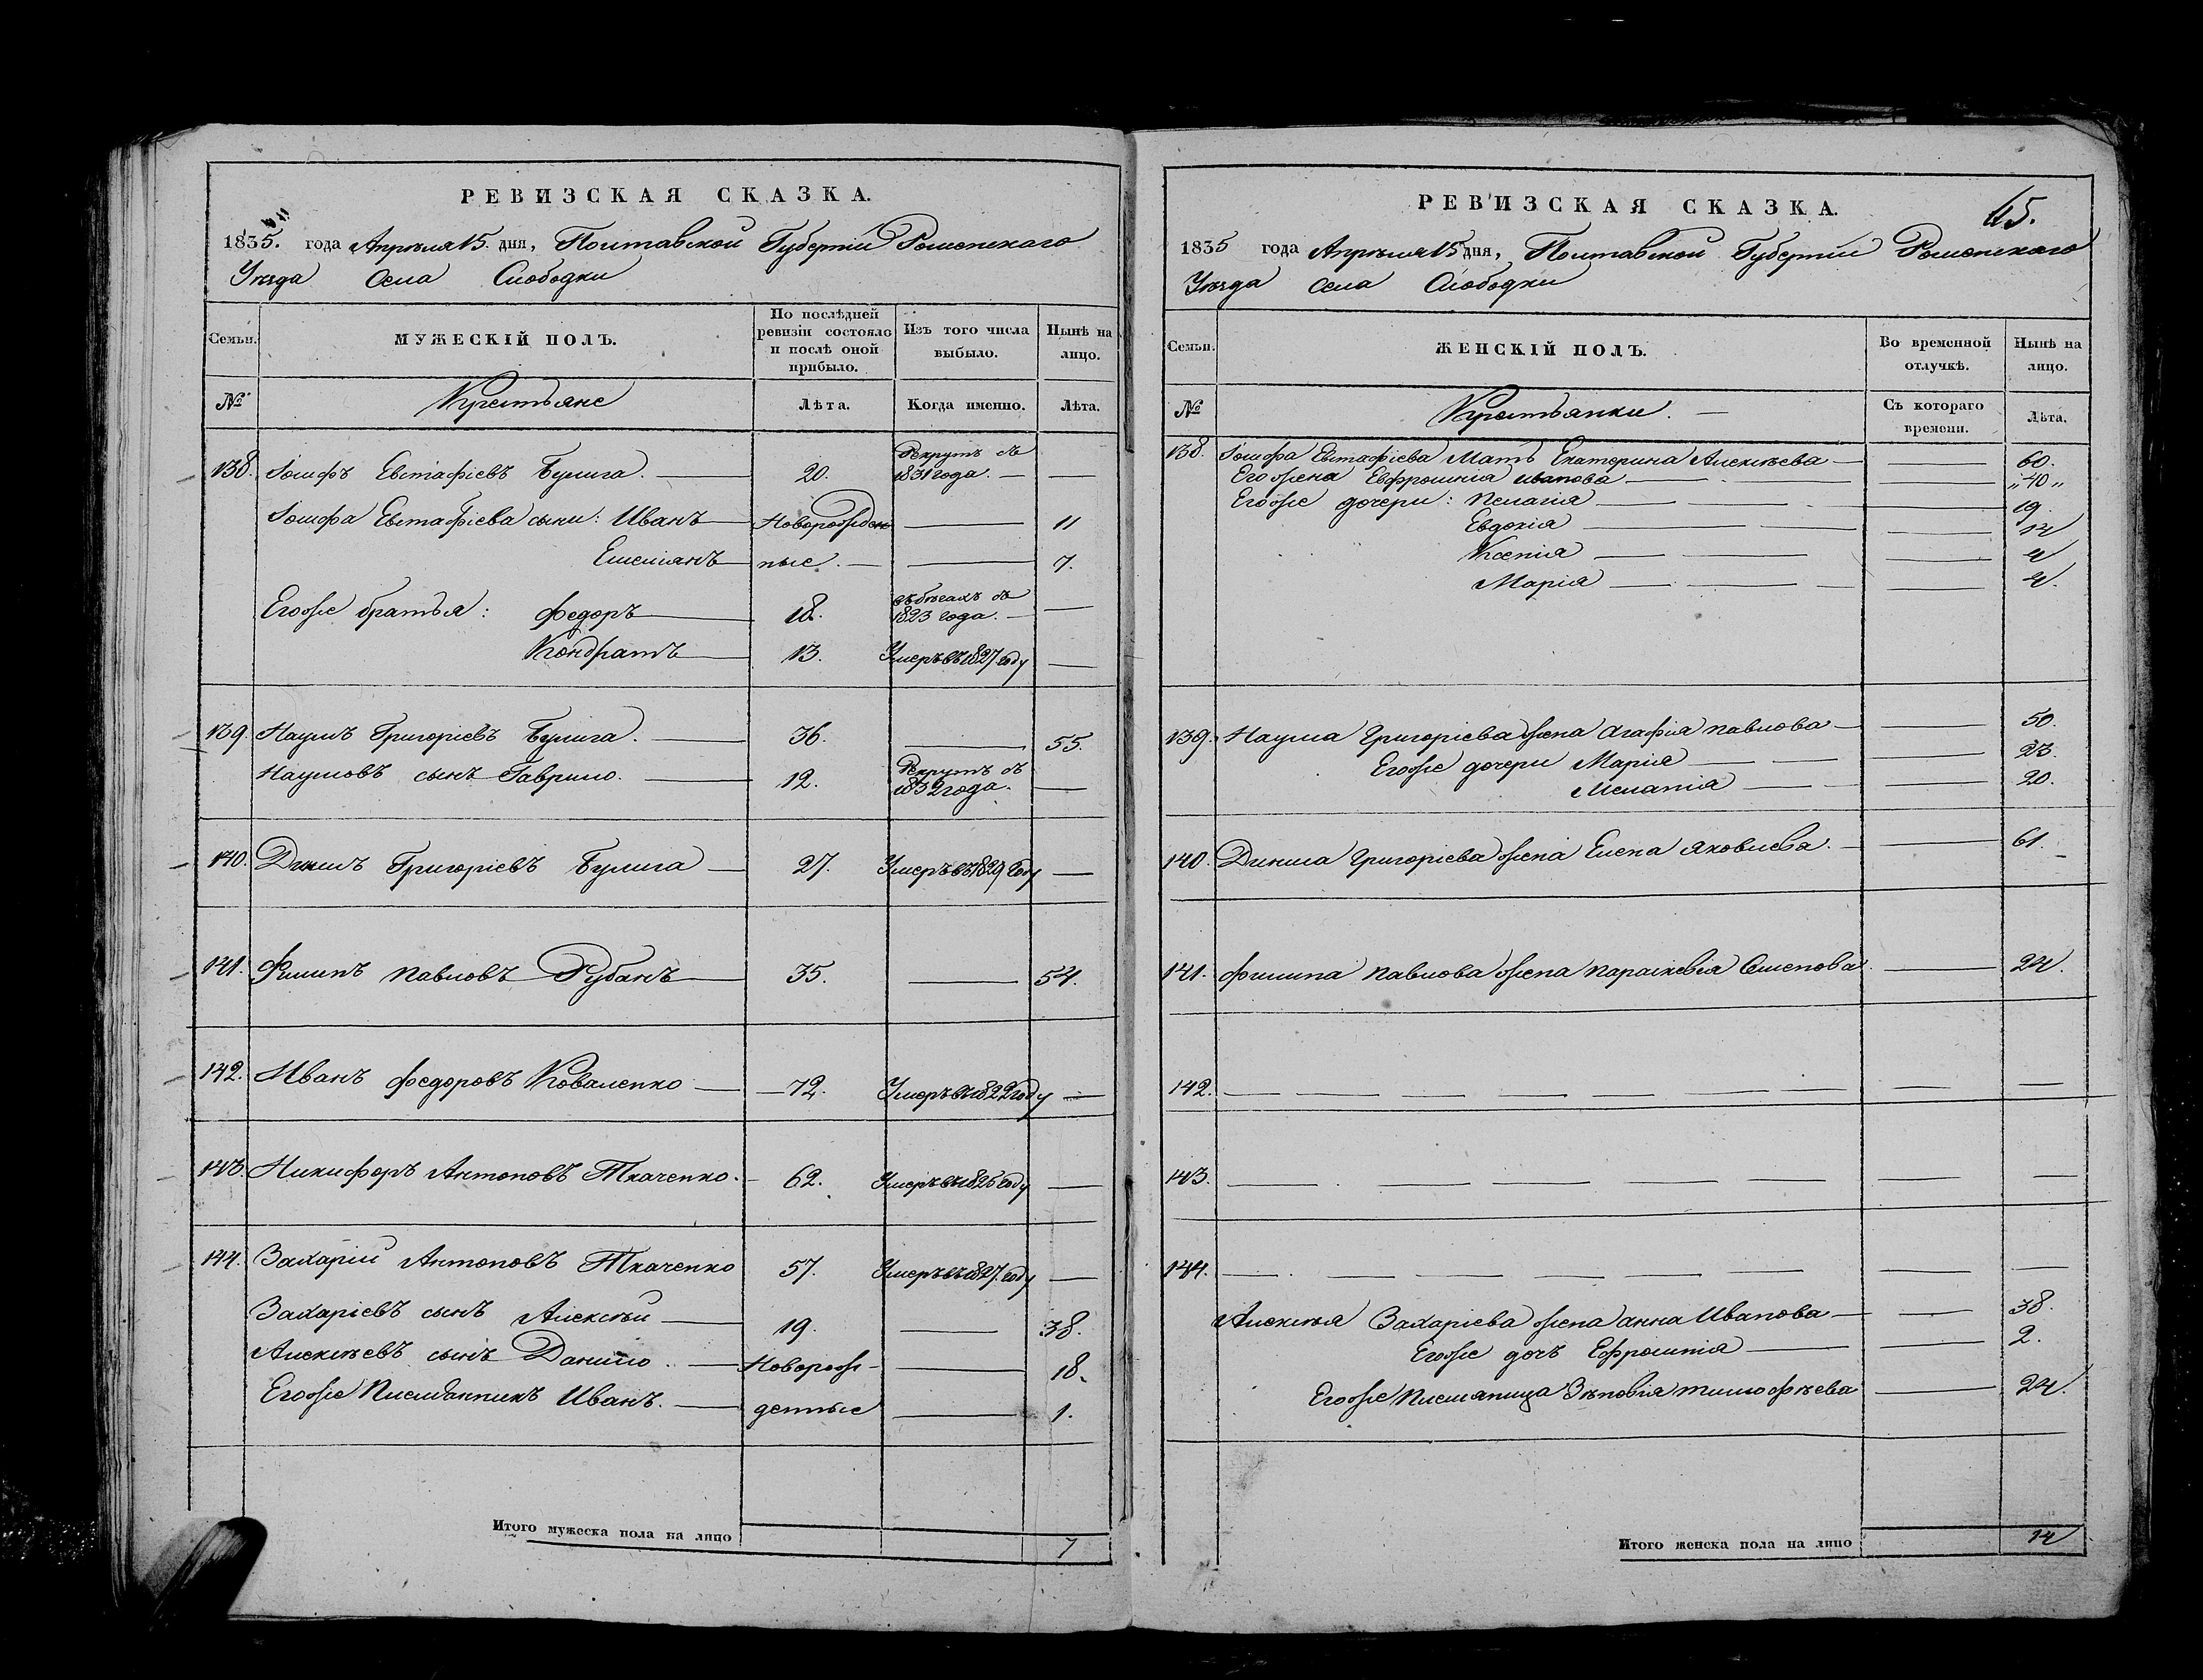 РЕВИЗСКАЯ СКАЗКА.
1835. года Апрѣля 15. дня, Полтавской Губерніи Роменскаго
Уѣзда Села Слободки
Семьи.
МУЖЕСКІЙ ПОЛЪ.
По послѣдней ревизіи состояло и послѣ оной прибыло.
Изъ того числа выбыло.
Нынѣ на лицо.
№
Крестьяне
Лѣта.
Когда именно.
Лѣта.
138. Іосифъ Евстафіевъ Булига. 20. Рекрутъ съ 1831 года.
Іосифа Евстафіева сыны: Иванъ Новорожден 11
Емеліянъ ные. 7.
Егоже братья: Федоръ 18. въ бѣгахъ съ 1823 года.
Кондратъ 13. Умеръ въ 1827 году
139. Наумъ Григоріевъ Булига. 36. 55.
Наумовъ сынъ Гаврило. 12. Рекрутъ съ 1832 года.
140. Григоріевъ Булига 27. Умеръ въ 1829 году
141. Филипъ Павловъ Рубанъ 35. 54.
142. Иванъ Федоровъ Коваленко 72. Умеръ въ 1822 году
143. Никифоръ Антоновъ Ткаченко. 62. Умеръ въ 1826 году
144. Захарій Антоновъ Ткаченко 57. Умеръ въ 1827. году
Захаріевъ сынъ Алексѣй 19. 38.
Алексѣевъ сынъ Данило. Новорож- 18.
Егоже Племянникъ Иванъ. денные 1.
Итого мужеска пола на лицо 7
РЕВИЗСКАЯ СКАЗКА.
65.
1835 года Апрѣля 15 дня, Полтавской Губерніи Роменскаго
Уѣзда Села Слободки
Семьи.
ЖЕНСКІЙ ПОЛЪ.
Во временной отлучкѣ.
Нынѣ на лицо.
№
Крестьянки.
Съ котораго времени.
Лѣта.
138. Іосифа Евстафіева Мать Екатерина Алексѣева 60.
Его жена Евфросинія Иванова „40„
Егоже дочери: Пелагія 19.
Евдокія 14
Ксенія 4
Марія 4.
139. Наума Григоріева жена Агафія Павлова 50.
Егоже дочери Марія 23.
Меланія 20.
140. Григоріева жена Елена Яковлева. 61.
141. Филипа Павлова жена Параскевія Семенова 24.
142.
143.
144.
Алексѣя Захаріева жена Анна Иванова 38.
Егоже дочь Ефросинія 2.
Егоже Племяница Зѣновія Тимофѣева 24.
Итого женска пола на лицо 14